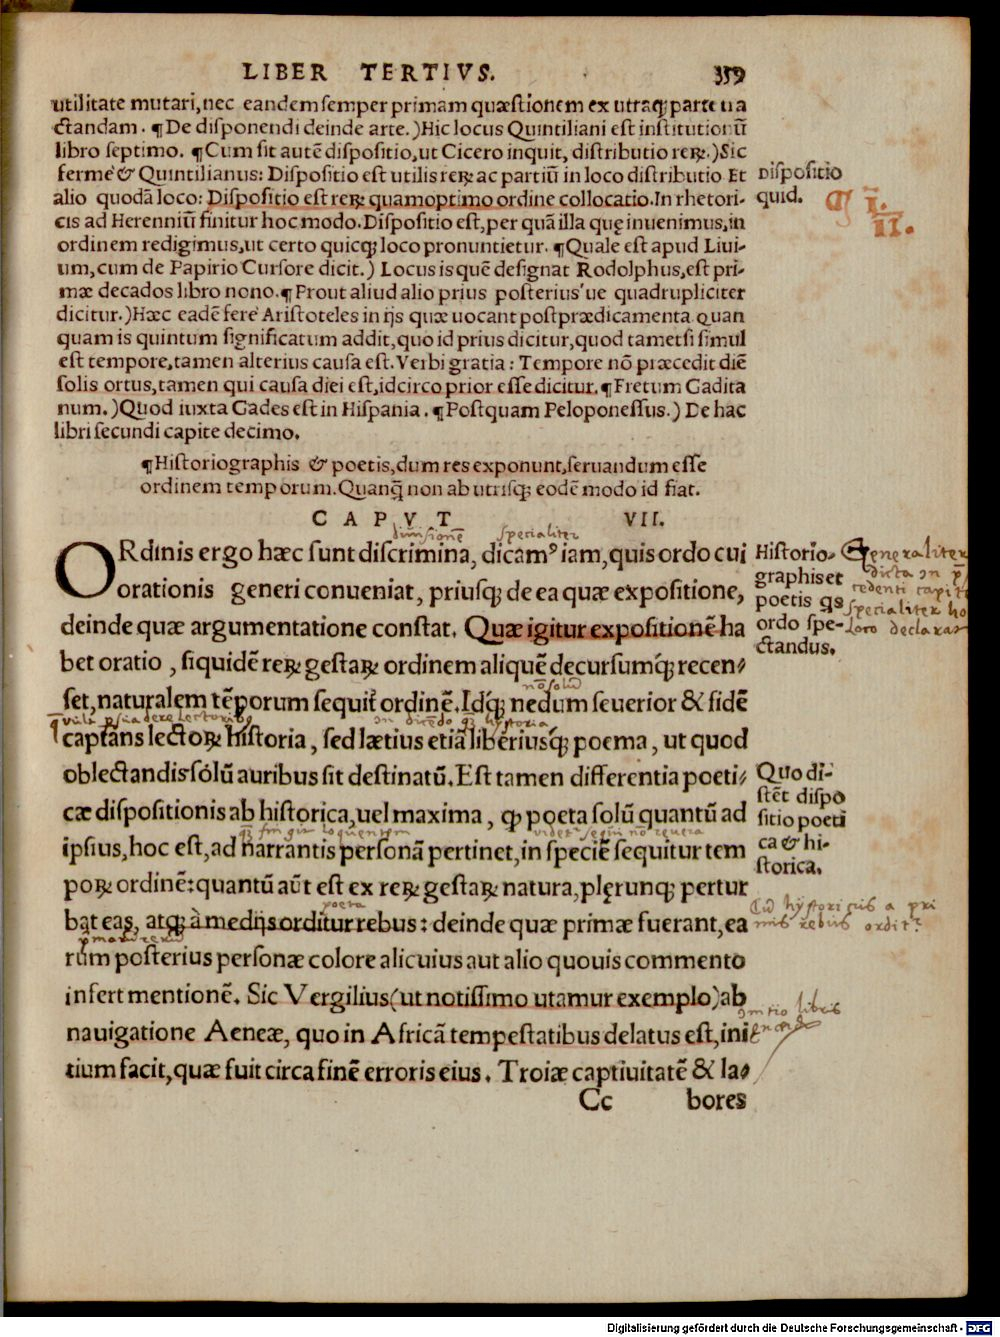 LIBER TERTIVS. 359
utilitate mutari, nec eandem semper primam quæstionem ex utraq; parte tra
ctandam. ¶De disponendi deinde arte.) Hic locus Quintiliani est institutionũ
libro septimo. ¶Cum sit autẽ dispositio, ut Cicero inquit, distributio reꝝ.) Sic
ferme & Quintilianus: Dispositio est utilis reꝝ ac partiũ in loco distributio Et
alio quodã loco: Dispositio est reꝝ quamoptimo ordine collocatio. In rhetori-
cis ad Herenniũ finitur hoc modo. Dispositio est, per quã illa quę inuenimus, in
ordinem redigimus, ut certo quicq; loco pronuntietur. ¶Quale est apud Liui-
um, cum de Papirio Cursore dicit.) Locus is quẽ designat Rodolphus, est pri-
mæ decados libro nono. ¶Prout aliud alio prius posterius'ue quadrupliciter
dicitur.) Hæc eadẽ fere Aristoteles in ijs quæ uocant postprædicamenta quan
quam is quintum significatum addit, quo id prius dicitur, quod tametsi simul
est tempore, tamen alterius causa est. Verbi gratia: Tempore nõ præcedit diẽ
solis ortus, tamen qui causa diei est, idcirco prior esse dicitur. ¶Fretum Gadita
num.) Quod iuxta Gades est in Hispania. ¶Postquam Peloponessus.) De hac
libri secundi capite decimo.
Dispositio
quid.
¶ I.
II.
¶Historiographis & poetis, dum res exponunt, seruandum esse
ordinem temporum. Quanq̃ non ab utrisq; eodẽ modo id fiat.
CAPVT VII.
specialiter
ORdinis ergo hæc sunt discrimina, dicamꝰ iam, quis ordo cui
orationis generi conueniat, priusq; de ea quæ expositione,
deinde quæ argumentatione constat. Quæ igitur expositionẽ ha
bet oratio, siquidẽ reꝝ gestaꝝ ordinem aliquẽ decursumq́; recen-
set, naturalem tẽporum sequit̃ ordinẽ. Idq́; nedum seuerior & fidẽ
captans lectoꝝ historia, sed lætius etiã liberiusq́; poema, ut quod
oblectandis solũ auribus sit destinatũ. Est tamen differentia poeti-
cæ dispositionis ab historica, uel maxima, ꝙ poeta solũ quantũ ad
ipsius, hoc est, ad narrantis personã pertinet, in speciẽ sequitur tem
poꝝ ordinẽ: quantũ aũt est ex reꝝ gestaꝝ natura, plęrunq; pertur
bat eas, atq; à medijs orditur rebus: deinde quæ primæ fuerant, ea
poeta
rum posterius personæ colore alicuius aut alio quouis commento
infert mentionẽ. Sic Vergilius (ut notissimo utamur exemplo) ab
nauigatione Aeneæ, quo in Africã tempestatibus delatus est, ini
tium facit, quæ fuit circa finẽ erroris eius. Troiæ captiuitatẽ & la-
Cc bores
Historio-
graphis et
poetis qs
ordo spe-
ctandus.
Generaliter
dicta in
specialiter
Quo di-
stẽt dispo
sitio poeti
ca & hi-
storica.
Cũ hystoricus a pri
mis rebus ordit̃
Digitalisierung gefördert durch die Deutsche Forschungsgemeinschaft - DFG